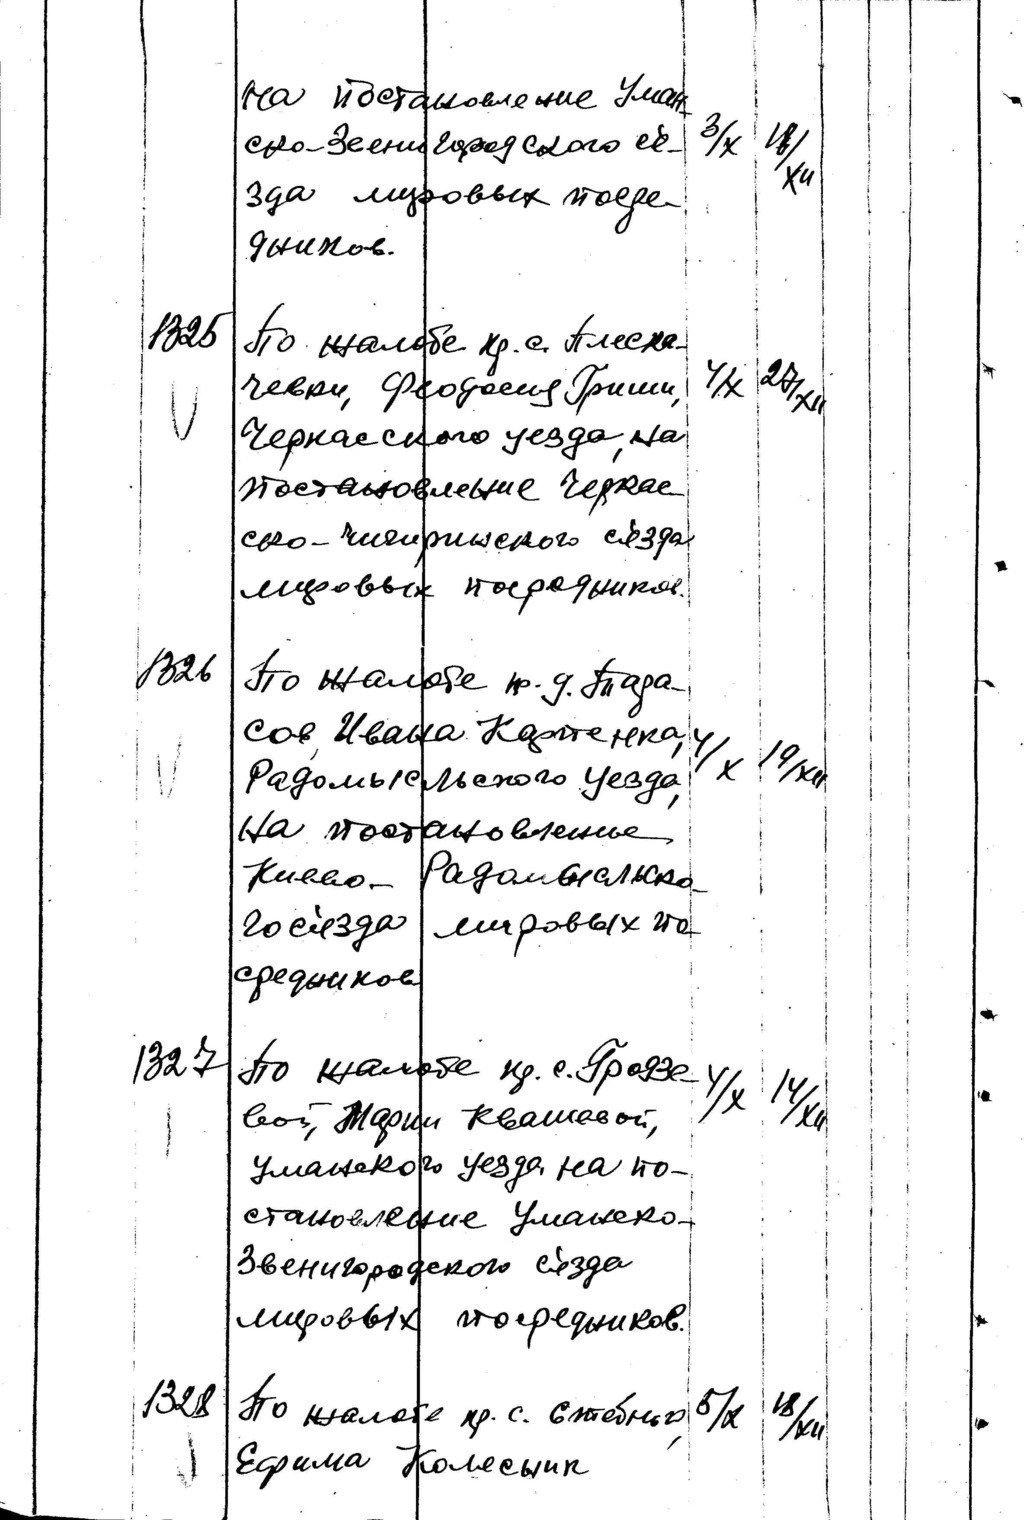 на постановление Уман
ско-Звенигородского съе- 3/X 18/XII
зда мировых посре-
дников.
1325 По жалобе кр. с. Плеска-
чевки, Феодосия Гриши, 4/X 27/XII
Черкасского уезда, на
постановление Черкас
ско-Чигиринского съезда
мировых посредников.
1326 По жалобе кр. д.
сов, Ивана Карпенка, 4/X 19/XII
Радомысльского уезда,
на постановление
Киево-Радомысльско-
го съезда мировых по-
средников
1327 По жалобе кр. с. Гродзе- 4/X 14/XII
вой, Марии Квашевой,
Уманского уезда на по-
становление Уманско-
Звенигородского съезда
мировых посредников.
1328 По жалобе кр. с. Стебного, 5/X 18/XII
Ефима Колесник